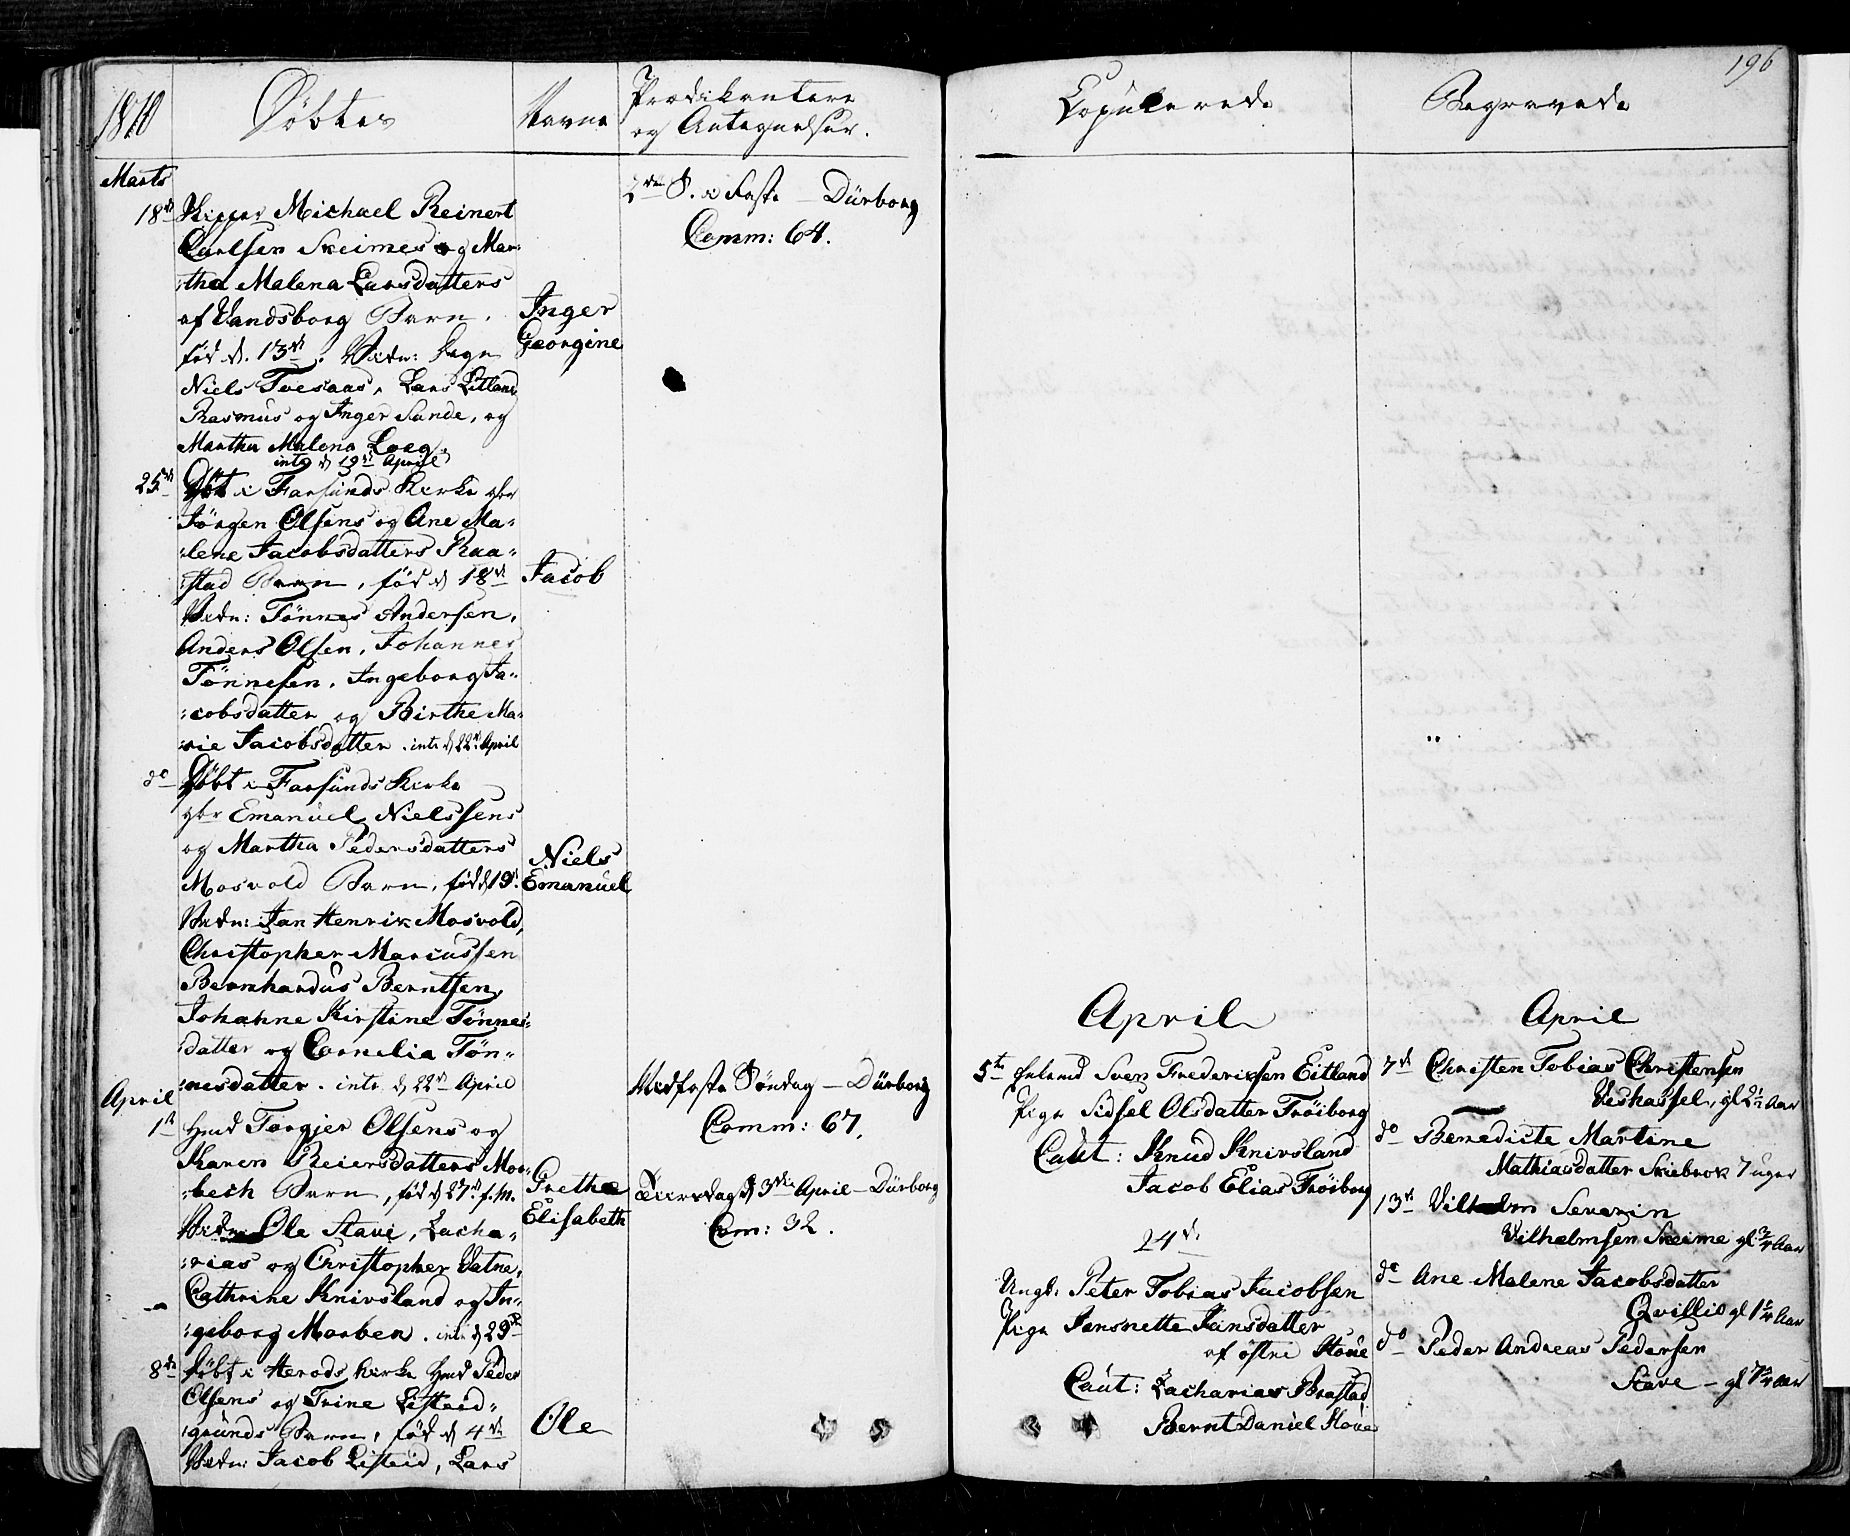 1810
Döbtes
Navne
Prædikantere
og Antegnelser.
Marts
18de Skipper Michael Reinert
Carlsen Skeimes og Mar-
:tha Malena Larsdatters
af Vandsborg Barn.
född d. 13de. Vidn:
Niels Tvesaas, Lars Eitland
Rasmus og Inger Sande, og
Martha Malena Loeg.
intr d 19de Aprill
Inger
Georgine
2den S. i Faste – Dürborg
Comm: 64.
25de Döbt i Farsunds Kirke gbr
Jörgen Olsens og Ane Ma-
:lene Jacobsdatters Raa-
:stad Barn, föd d 18de
Vidn: Tönnes Andersen,
Anders Olsen, Johannes
Tönnesen, Ingeborg Ja-
:cobsdatter og Birthe Ma-
:rie Jacobsdatter. intr d 22de April
Jacob
do Döbt i Farsunds Kirke
gbr Emanuel Nielssens
og Martha Pedersdatters
Mosvold Barn, föd d 19de
Vidn: Jan Henrik Mosvold,
Christopher Marcussen
Bernhardus Berntsen,
Johanne Kirstine Tönnes-
:datter og Cornelia Tön-
:nesdatter. intr d 22de April
Niels
Emanuel
April
1ste Hmd Torgjer Olsens og
Karen Reiersdatters Mor-
:bech Barn, föd d 27de f. M.
Vidn: Ole Stave, Zacha-
:rias og Christopher Vatne,
Cathrine Knivsland og In-
:geborg Morben. intr d 29de
Grethe
Elisabeth
Midfaste Söndag – Dürborg
Comm: 67.
Tiersdag d 3die April – Dürborg
Com: 32.
8de Döbt i Herods Kirke Hmd Peder
Olsens og Trine Listeid-
:grunds Barn, föd d 4de
Vidn: Jacob Listeid, Lars
Ole
196
Copulerede
Begravede
April
5te Enkemd Sven Frederiksen Eitland
Pige Sidsel Olsdatter Tröiborg
Caut: Knud Knivsland
Jacob Elias Tröiborg
24de
Ungk: Peter Tobias Jacobsen
Pige Jensnette Jansdatter
af östre Houe
Caut: Zacharias Brastad
Bernt Daniel Houe
April
7de Christen Tobias Christensen
Veshassel, gl 2½ Aar
do Benedicte Martine
Mathiasdatter Skiebrok 7 uger
13de Vilhelm Severin
Vilhelmsen Skeime gl ¾ Aar
do Ane Malene Jacobsdatter
Qvillio gl Aar
do Peder Andreas Pedersen
Stave – gl Aar